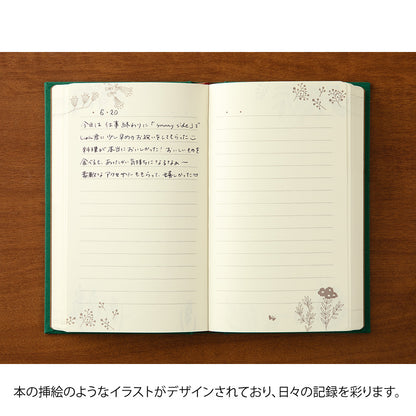 ・6・20
今日は 仕事 終わりに「sunny side」で
しゅん君に少し早めのお祝いをしてもらった
料理が本当においしかった! おいしいものを
食べると、あたたかい気持ちになるなぁー
素敵なアクセサリーももらって、嬉しかった♡
本の挿絵のようなイラストがデザインされており、日々の記録を彩ります。